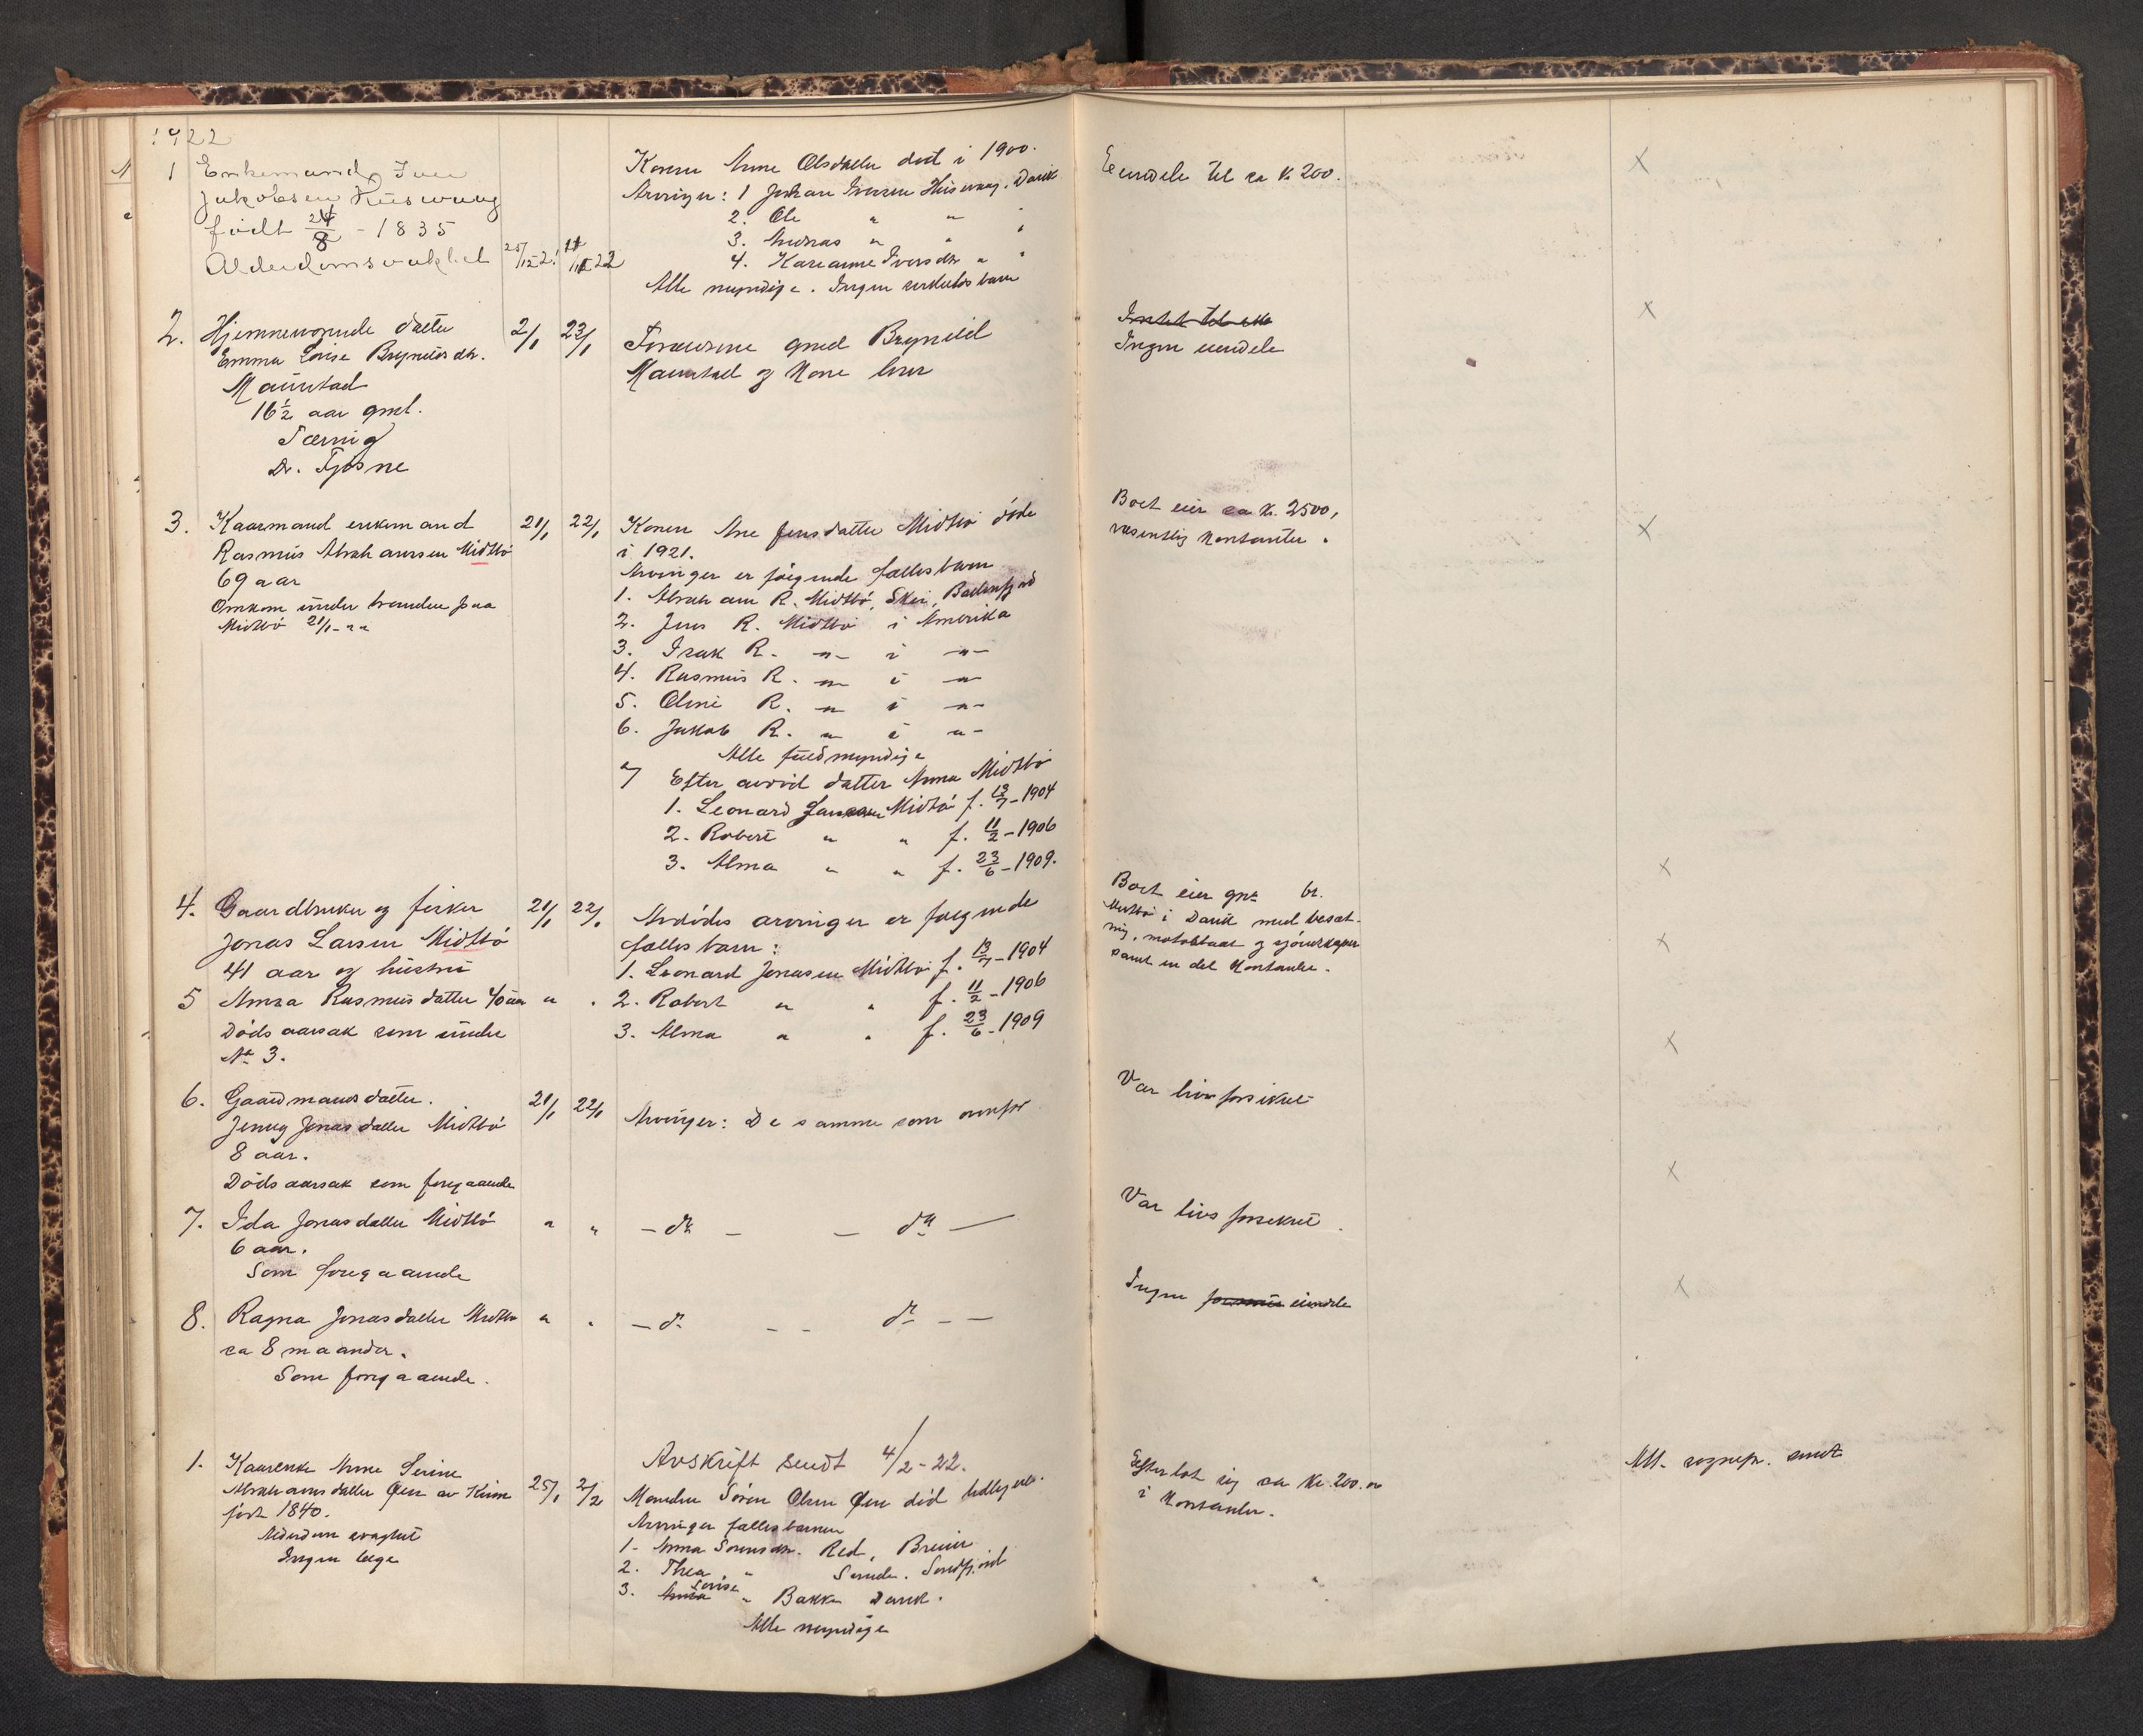 1922
1 Enkemand Iver
Jakobsen Husevaag
født 24/8 - 1835
Alderdomssvakhet
Konen Anne Olsdatter død i 1900.
Arvinger: 1 Johan Iversen Husevaag. Davik
2. Ole " " "
3. Andreas " " "
4. Karianne Iversdtr " "
Alle myndige. Ingen særkulds barn
Eiendele til ca k. 200.
X
2. Hjemmeværende datter 2/1 23/1
Emma Lovise Bryneldsdtr.
Maurstad
16½ aar gml.
Tæring
Dr. Fjøsne
Forældrene gmd Bryneld
Maurstad og Kone lever
Intet til
Ingen eiendele
X
3. Kaarmand enkemand 21/1 22/1
Rasmus Abrahamsen Midtbø
69 aar
Omkom under branden paa
Midtbø 21/1-22
Konen Ane Jensdatter Midtbø døde
i 1921.
Arvinger er følgende fællesbarn
1. Abraham R. Midtbø, Skei,
2. Jens R. Midtbø i Amerika
3. Isak R. -"- i -"-
4. Rasmus R. -"- i -"-
5. Oline R. -"- i -"-
6. Jakob R. " i -"-
Alle fuldmyndige
7 Efter avdød datter Anna Midtbø
1. Leonard Midtbø f. 13/7-1904
2. Robert " " f. 11/2-1906
3. Alma " " f. 23/6-1909.
Boet eier ca K. 2500,
væsentlig Kontanter.
X
4. Gaardbruker og fisker 21/1 22/1
Jonas Larsen Midtbø
41 aar og hustru
5 Anna Rasmusdatter 40 aar " "
Dødsaarsak som under
No 3.
Avdødes arvinger er følgende
fællesbarn:
1. Leonard Jonasen Midtbø f. 13/7-1904
2. Robert " " f. 11/2-1906
3. Alma " " f. 23/6-1909
Boet eier gnr br.
Midtbø i Davik med besæt-
ning, motorbaat og sjøredskaper
samt en del Kontanter.
X
X
6. Gaardmansdatter. 21/1 22/1
Jenny Jonasdatter Midtbø
8 aar.
Dødsaarsak som foregaaende
Arvinger: De samme som ovenfor
Var livsforsikret
X
7. Ida Jonasdatter Midtbø " "
6 aar.
Som foregaaende
- do - - do -
Var livsforsikret.
X
8. Ragna Jonasdatter Midtbø " "
ca 8 maander.
Som foregaaende.
- do - - do - -
Ingen eiendele
X
Avskrift sendt 4/2-22.
1. Kaarenke Anne Serine 25/1 2/2
Abrahamsdatter Øen av Kinn
født 1840.
Alderdom svaghet
Ingen læge
Manden Søren Olsen Øen død tidligere.
Arvinger fællesbarnene
1. Anna Sørensdtr. Red, Breim
2. Thea " Sande. Søndfjord
3. Anna Lovise " Bakke Davik.
Alle myndige
Efterlot sig ca Kr. 200.00
i Kontanter.